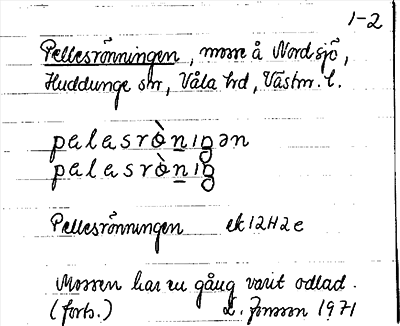 1-2
Pellesrönningen, mosse å Nordsjö,
Huddunge sn, Våla hd, Västm. l.
pelasrònıŋən
pelasrònıŋ
Pellesrönningen ek 12H2e
Mossen har en gång varit odlad.
(forts.) L. Jonsson 1971